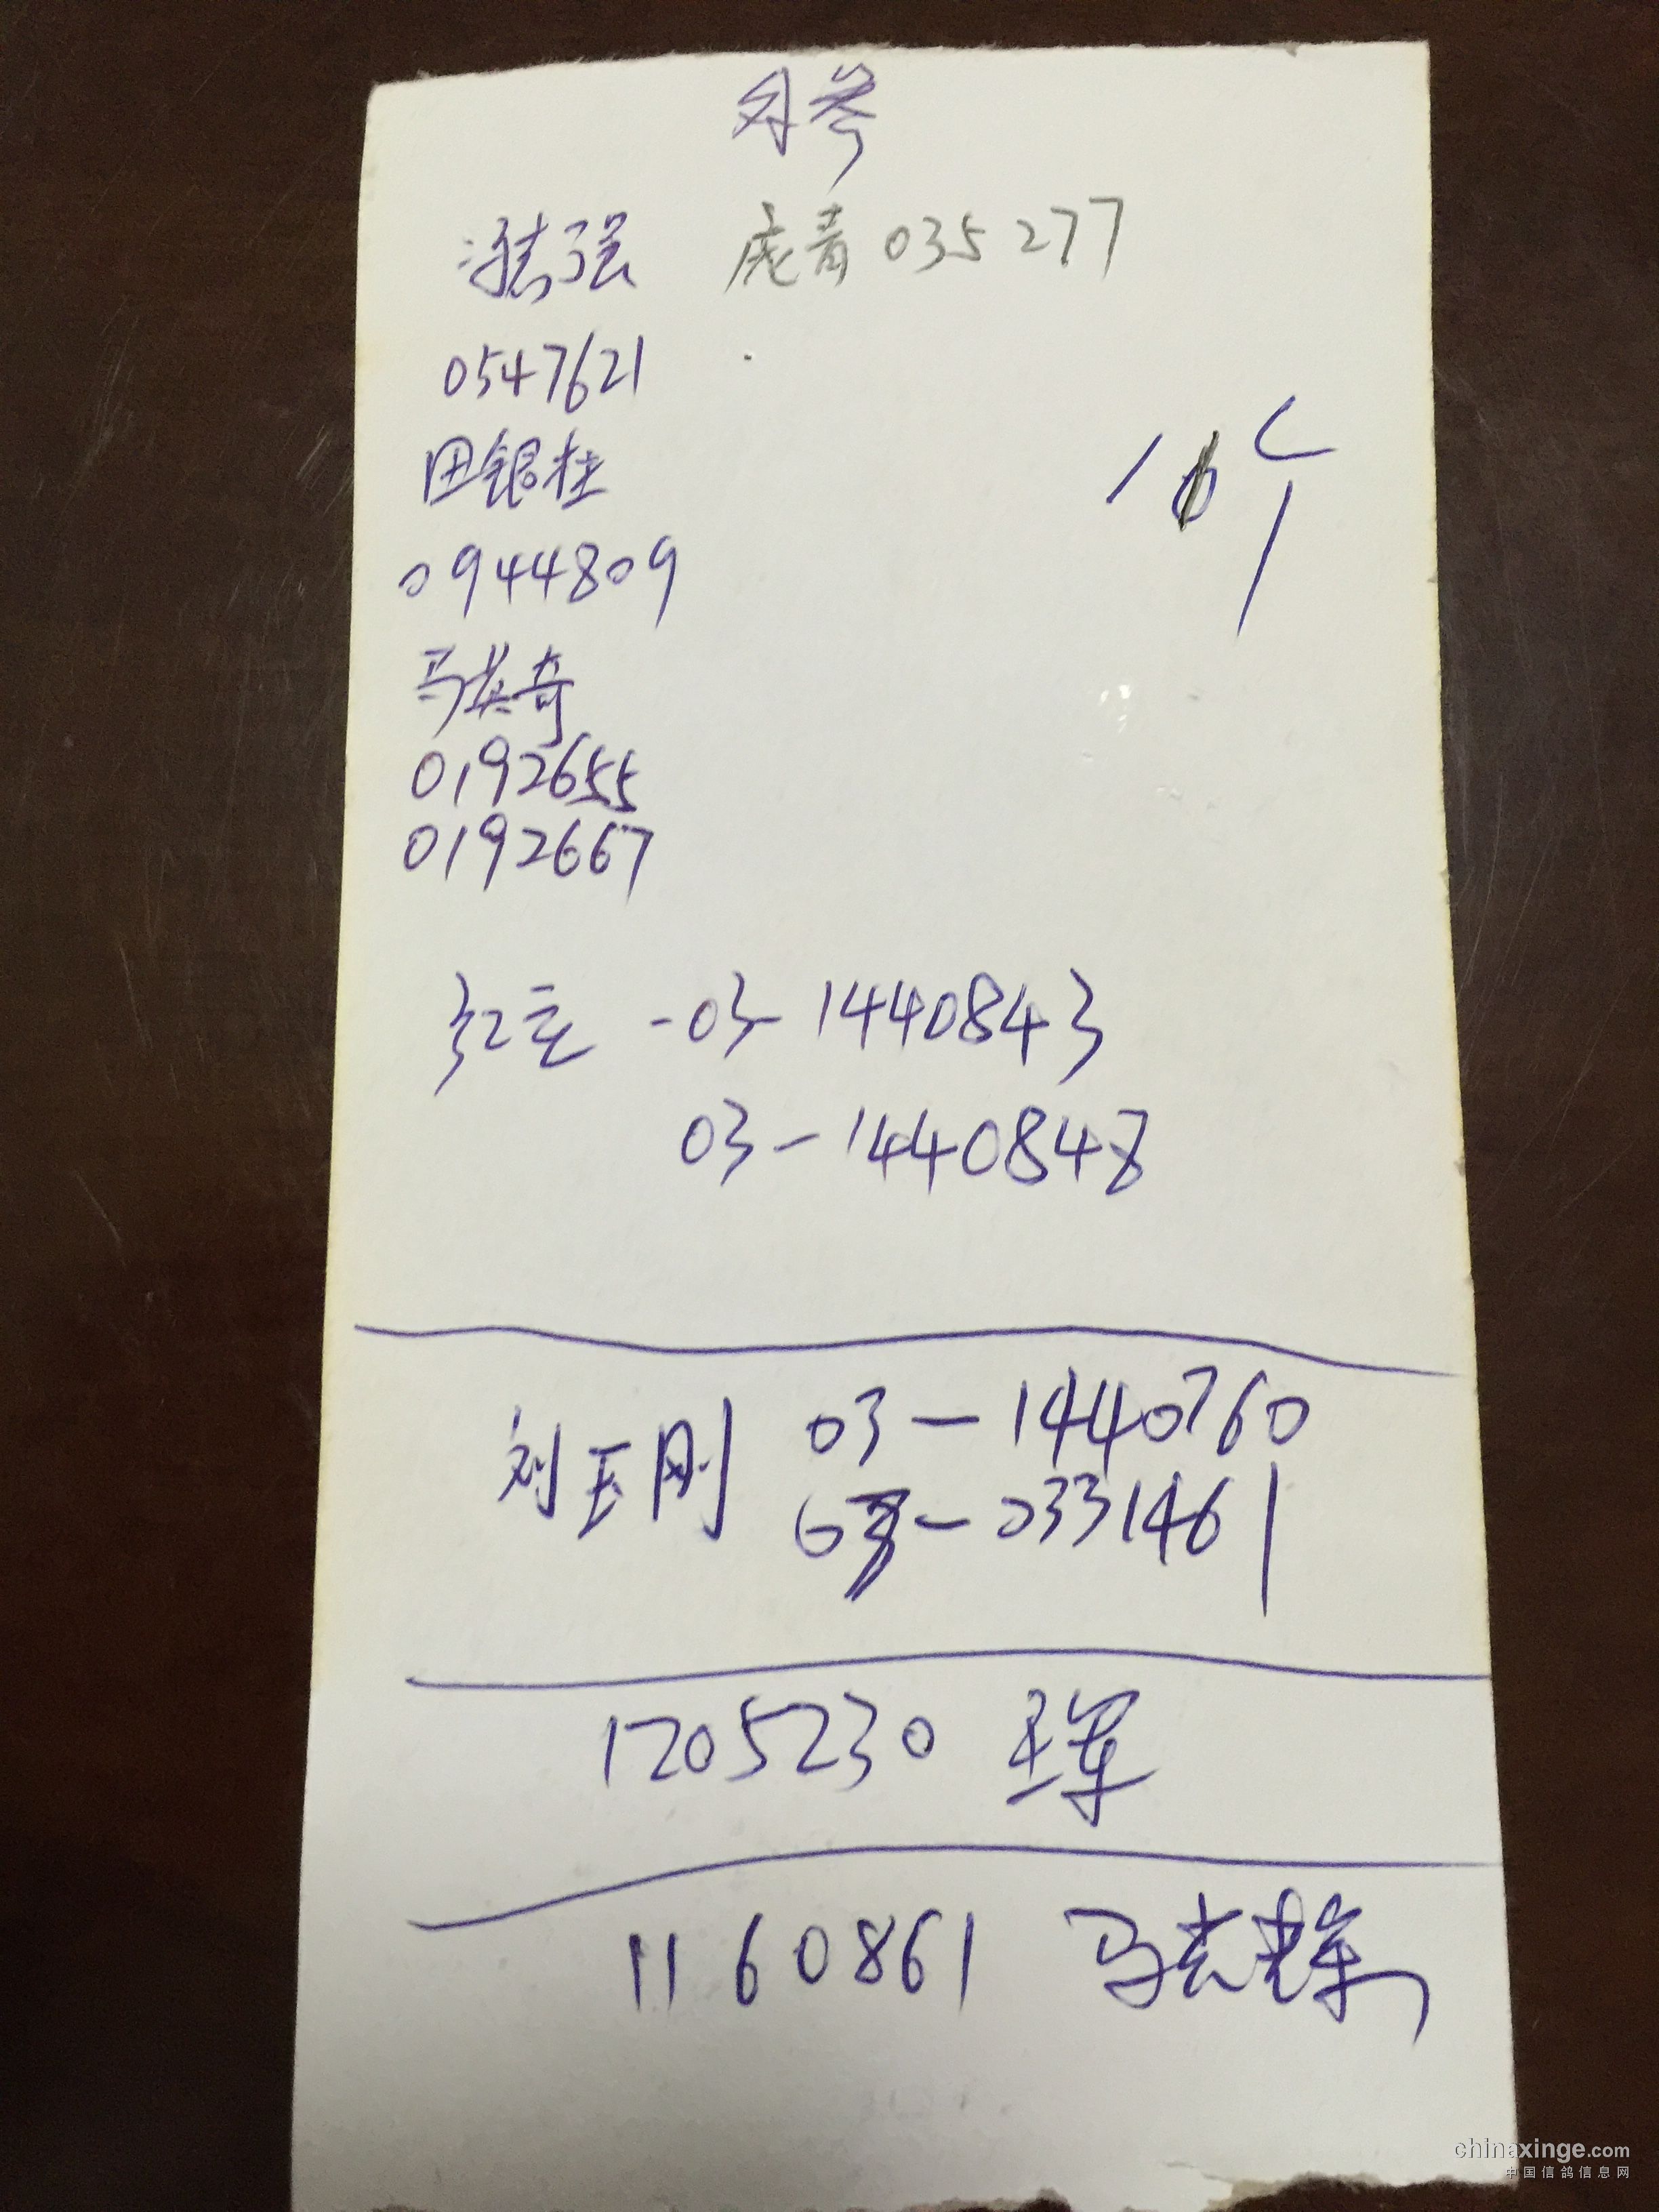 强 庞青 035277
0547621
田银柱
0944809
10个
马英奇
0192655
0192667
红主 -03-1440843
03-1440848
刘玉刚 03-1440760
03-0331461
1205230 王军
1160861 马志
chinaxinge.com
中国信鸽信息网